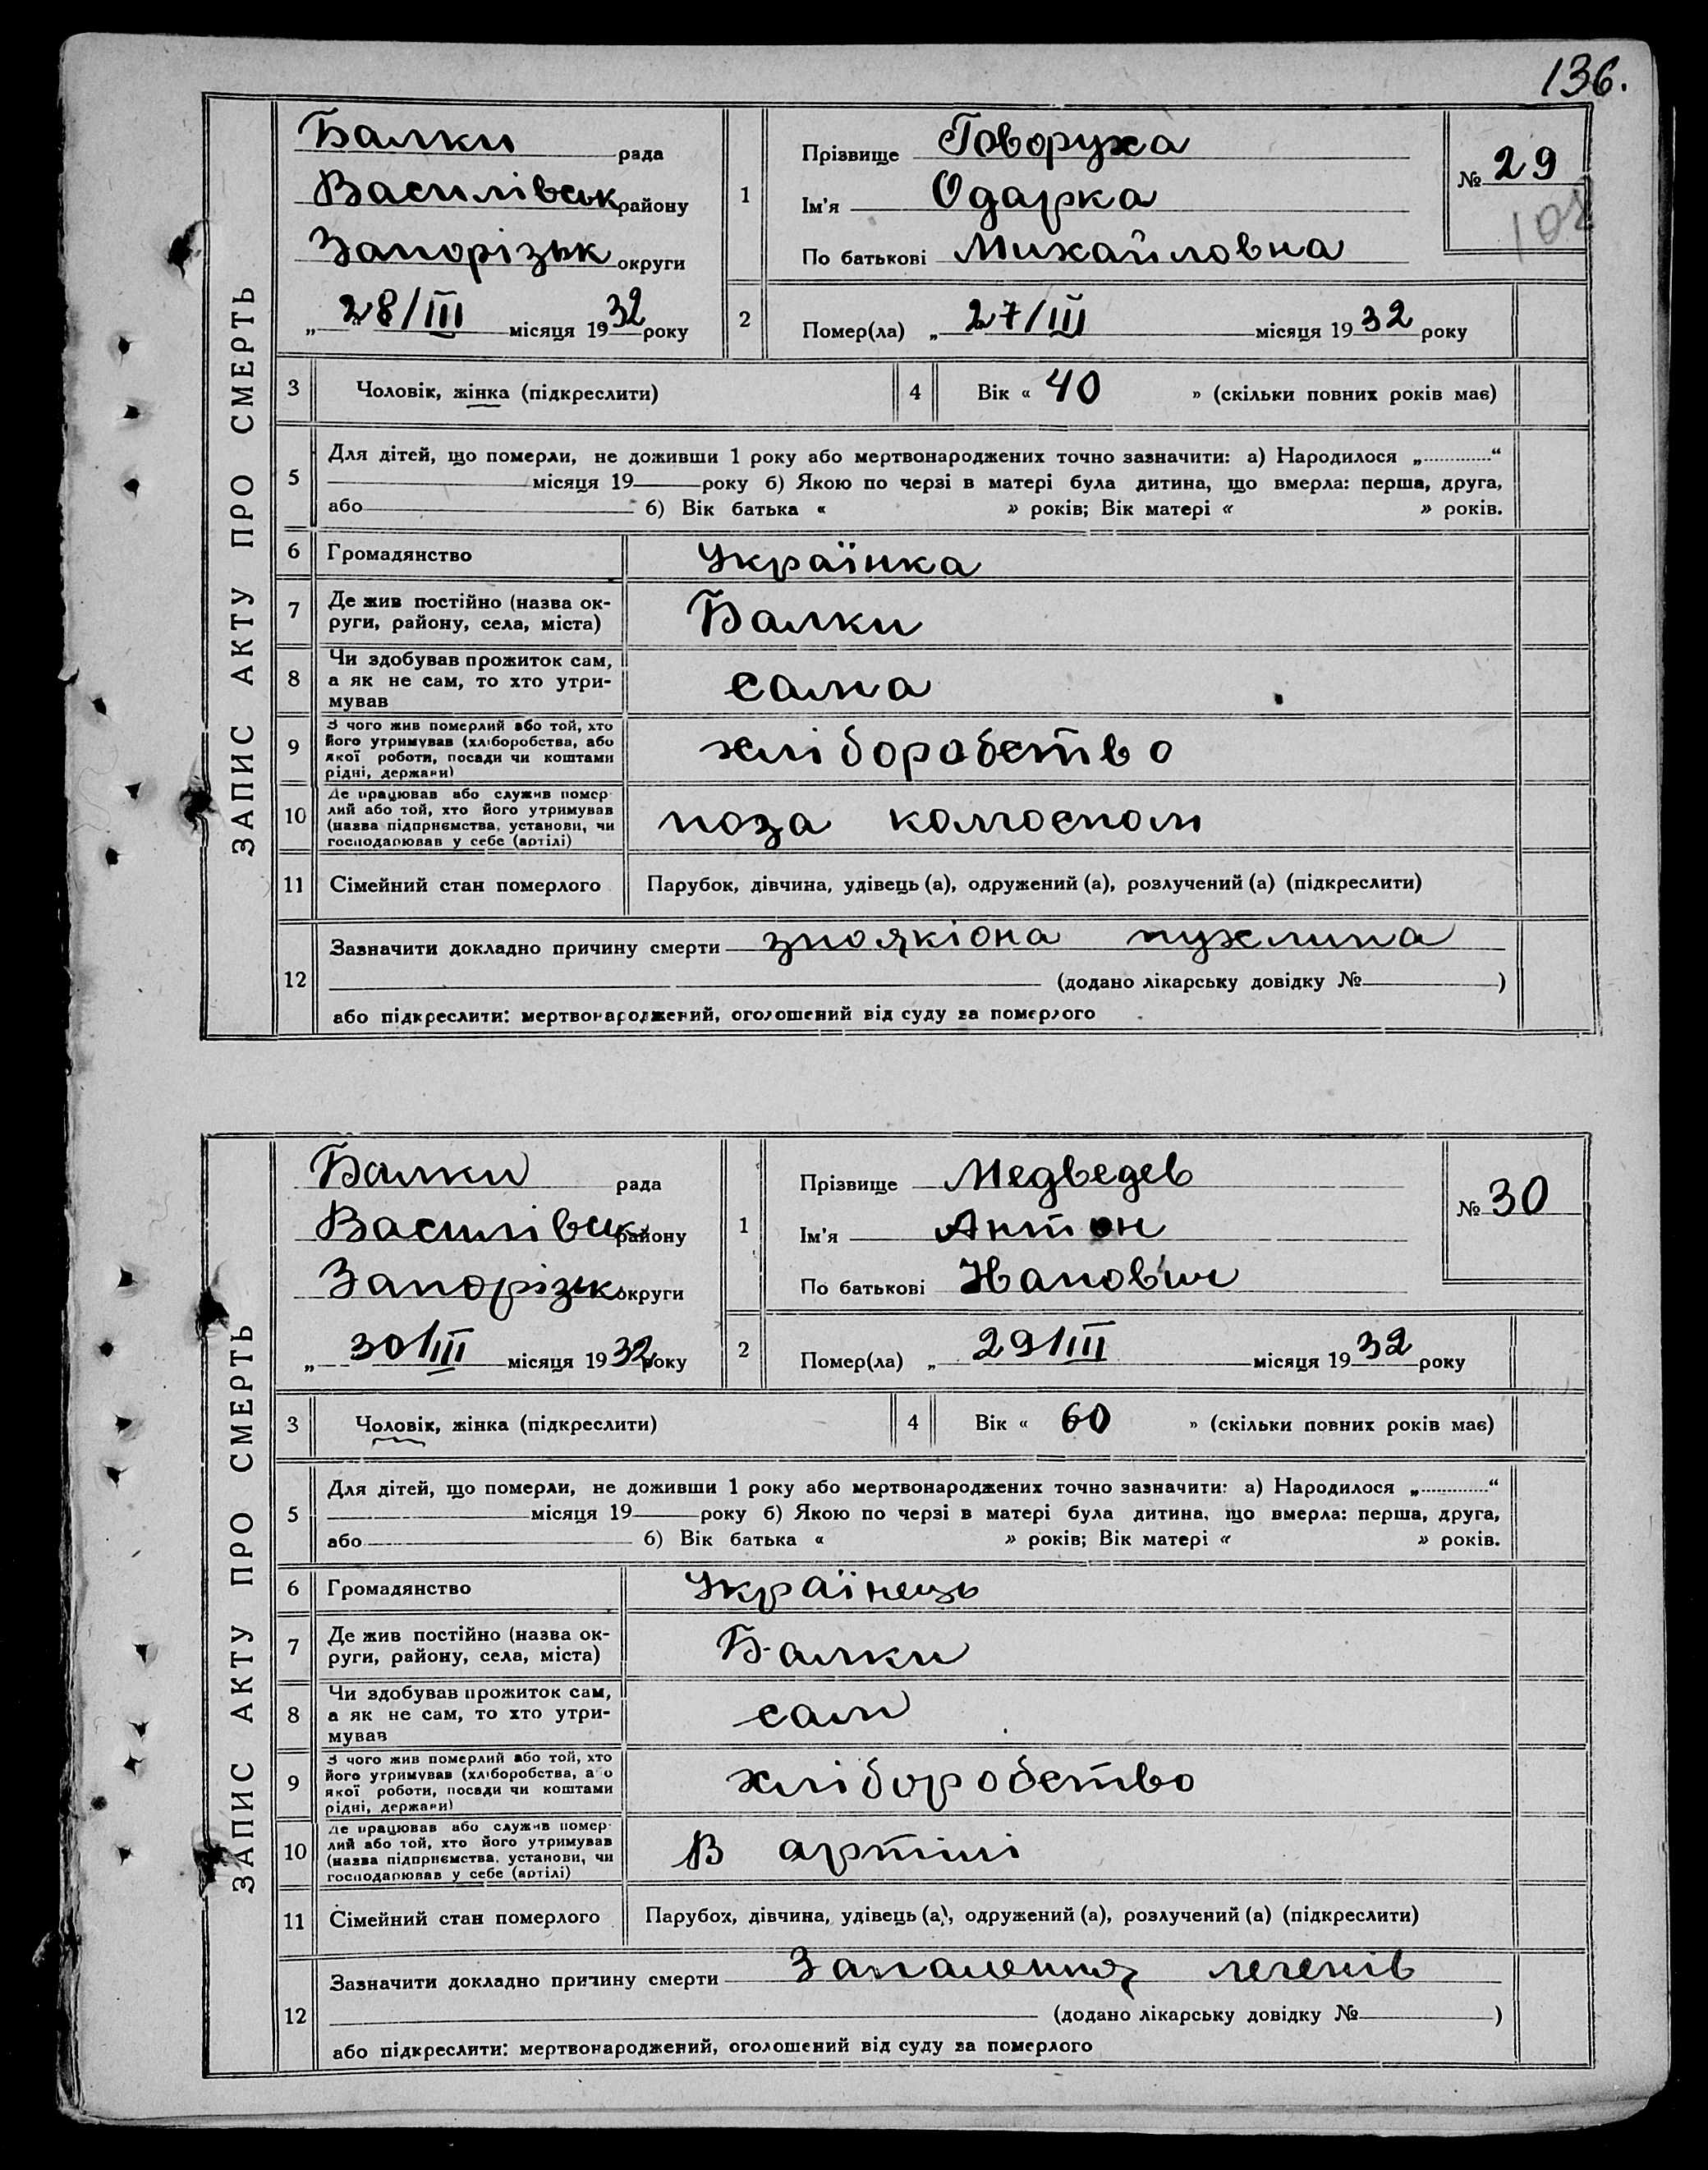 136.
ЗАПИС АКТУ ПРО СМЕРТЬ
Балки рада
Василівськ району
Запорізьк округи
„ 28/III місяця 1932 року
1
Прізвище Говоруха
Ім'я Одарка
По батькові Михайловна
№ 29
102
2
Помер(ла) „ 27/III місяця 1932 року
3 Чоловік, жінка (підкреслити)
4 Вік « 40 » (скільки повних років має)
5
Для дітей, що померли, не доживши 1 року або мертвонароджених точно зазначити: а) Народилося „............“
місяця 19 року б) Якою по черзі в матері була дитина, що вмерла: перша, друга,
або б) Вік батька « » років; Вік матері « » років.
6 Громадянство Українка
7 Де жив постійно (назва ок-
руги, району, села, міста) Балки
8 Чи здобував прожиток сам,
а як не сам, то хто утри-
мував сама
9 З чого жив померлий або той, хто
його утримував (хліборобства, або
якої роботи, посади чи коштами
рідні, держави) хліборобство
10 Де працював або служив помер-
лий або той, хто його утримував
(назва підприємства, установи, чи
господарював у себе (артілі) поза колгоспом
11 Сімейний стан померлого Парубок, дівчина, удівець (а), одружений (а), розлучений (а) (підкреслити)
12 Зазначити докладно причину смерти злоякіона пухлина
(додано лікарську довідку № )
або підкреслити: мертвонароджений, оголошений від суду за померлого
ЗАПИС АКТУ ПРО СМЕРТЬ
Балки рада
Василівськ району
Запорізьк округи
„ 30/III місяця 1932 року
1
Прізвище Медведев
Ім'я Антон
По батькові
№ 30
2
Помер(ла) „ 29/III місяця 1932 року
3 Чоловік, жінка (підкреслити)
4 Вік « 60 » (скільки повних років має)
5
Для дітей, що померли, не доживши 1 року або мертвонароджених точно зазначити: а) Народилося „............“
місяця 19 року б) Якою по черзі в матері була дитина, що вмерла: перша, друга,
або б) Вік батька « » років; Вік матері « » років.
6 Громадянство Українець
7 Де жив постійно (назва ок-
руги, району, села, міста) Балки
8 Чи здобував прожиток сам,
а як не сам, то хто утри-
мував сам
9 З чого жив померлий або той, хто
його утримував (хліборобства, або
якої роботи, посади чи коштами
рідні, держави) хліборобство
10 Де працював або служив помер-
лий або той, хто його утримував
(назва підприємства, установи, чи
господарював у себе (артілі) В артілі
11 Сімейний стан померлого Парубок, дівчина, удівець (а), одружений (а), розлучений (а) (підкреслити)
12 Зазначити докладно причину смерти Запалення легенів
(додано лікарську довідку № )
або підкреслити: мертвонароджений, оголошений від суду за померлого